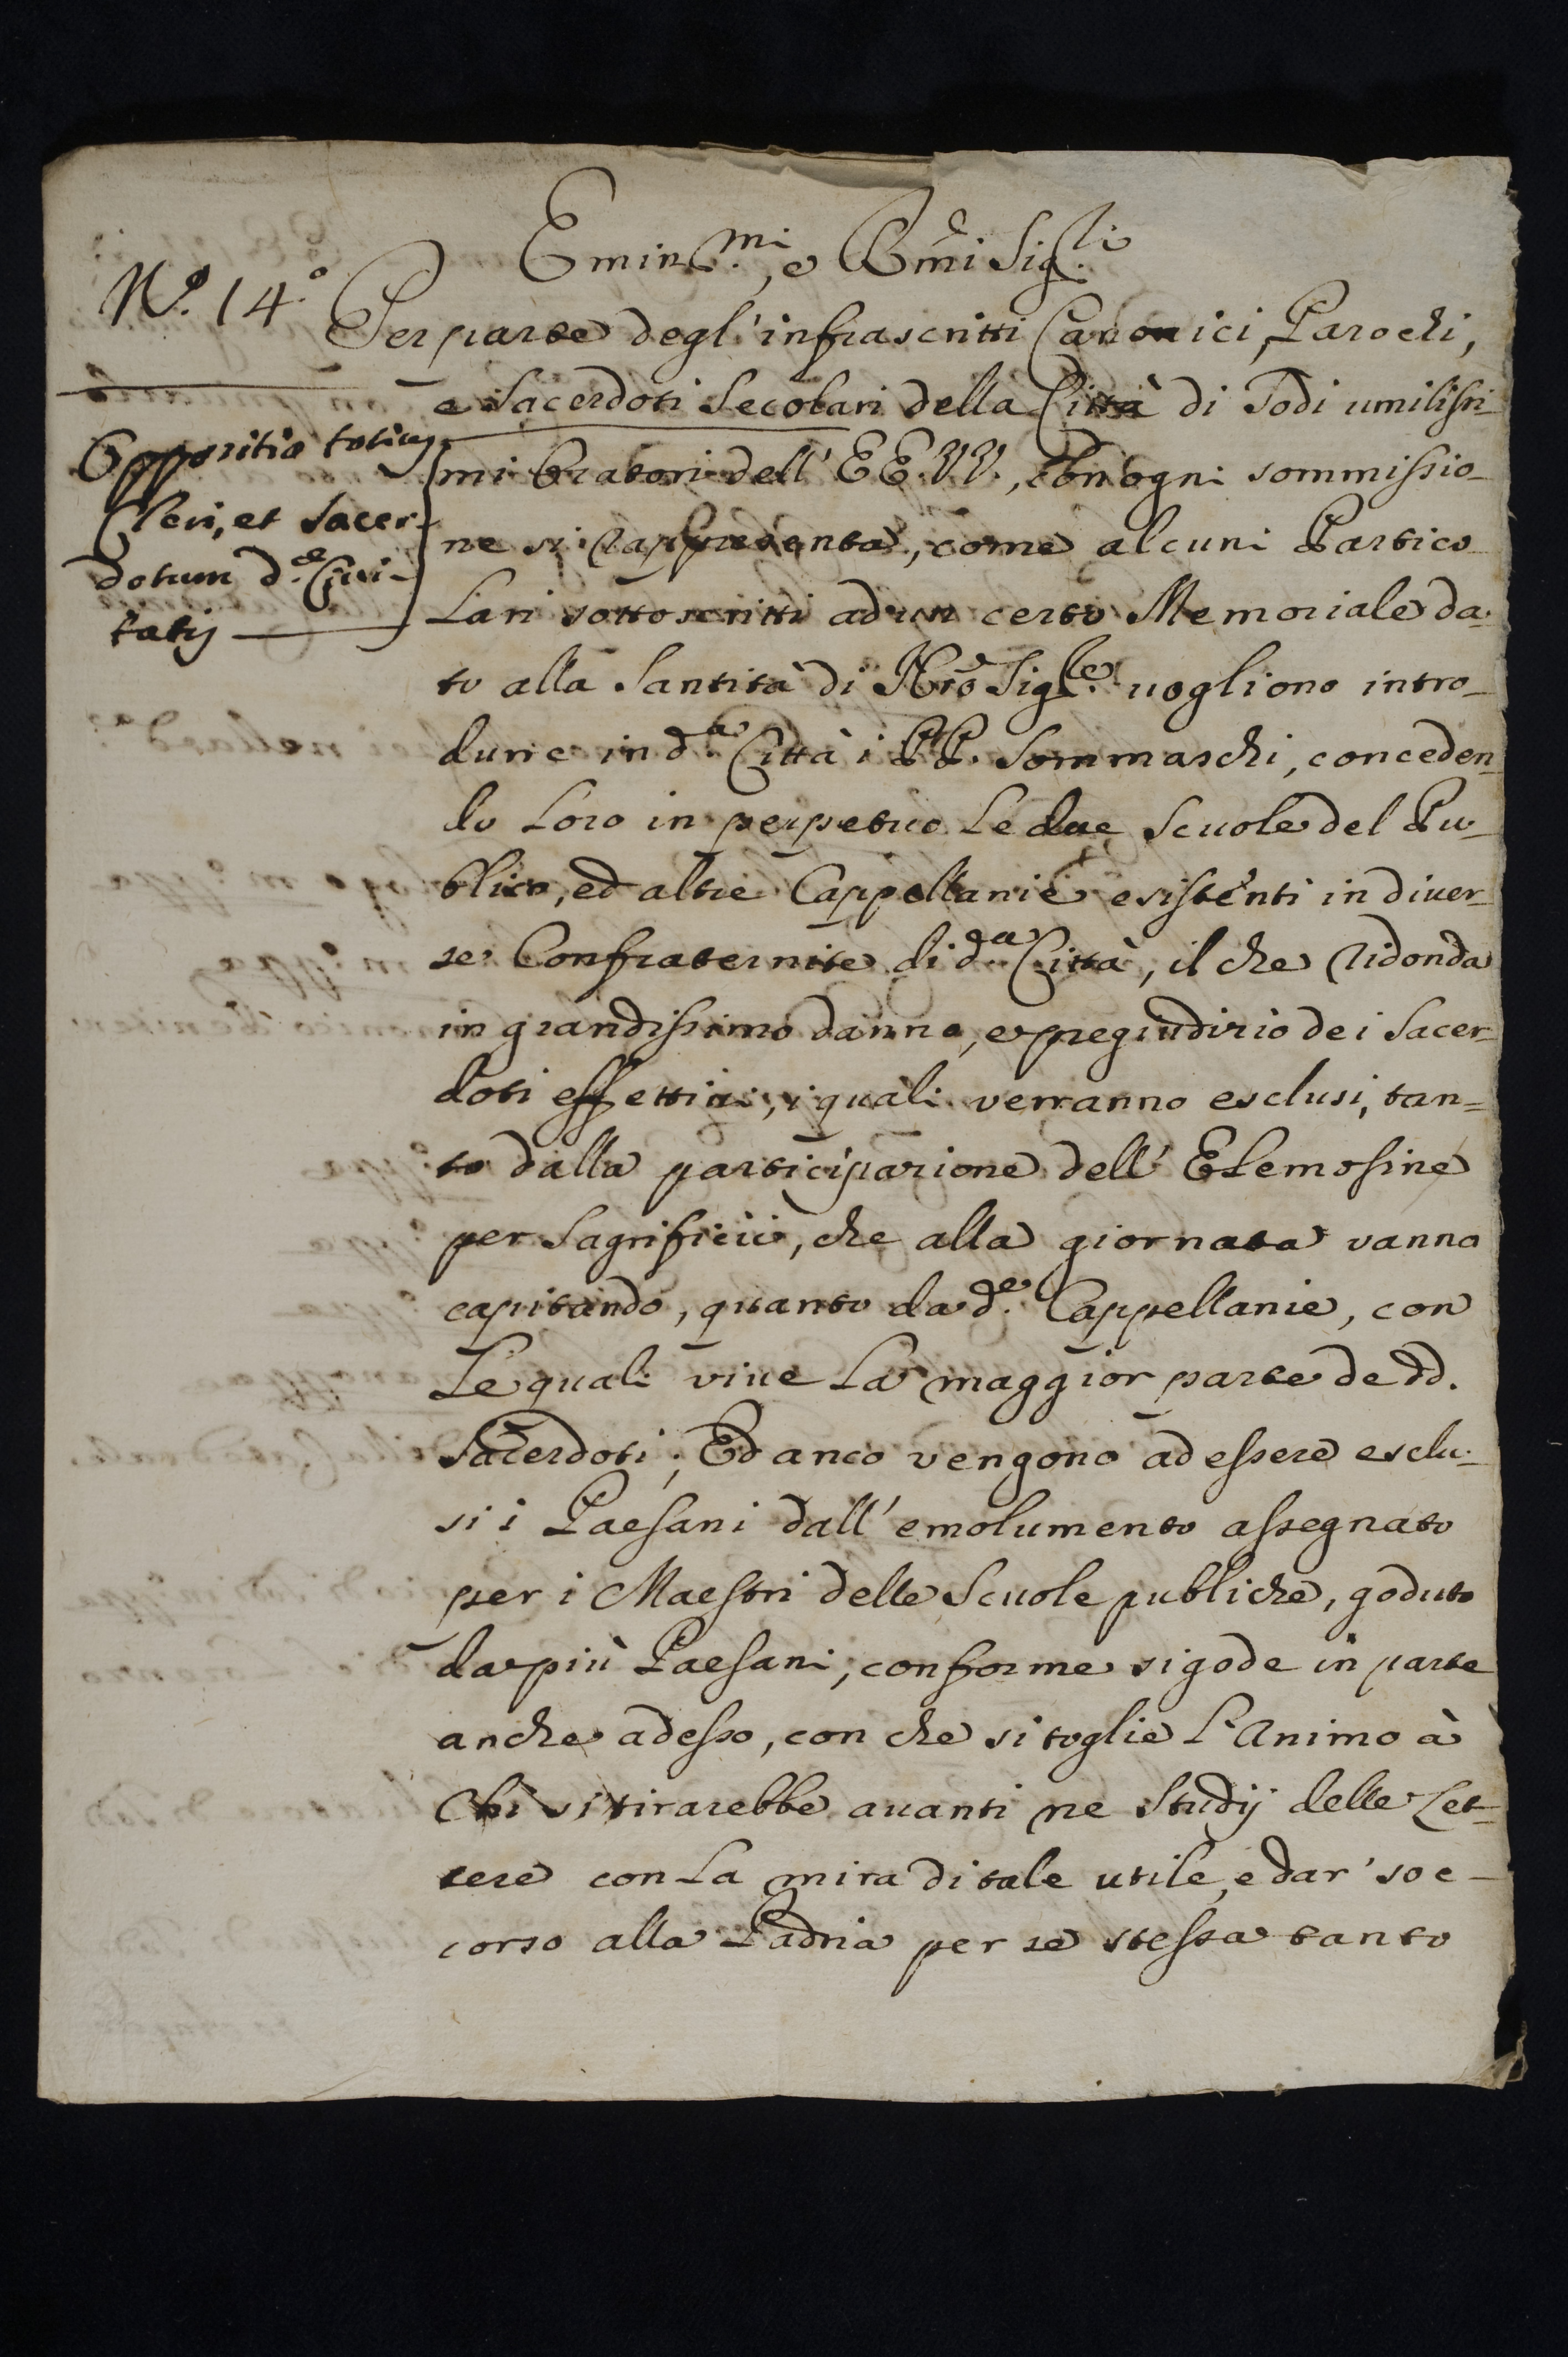 Emin.mi, e Rmi Sig.ri
N.o 14.o
Per parte degl'infrascritti Canonici, Parochi,
e Sacerdoti Secolari della Città di Todi umilissi-
mi Oratori dell'EE.VV., con ogni sommissio-
ne si rappresenta, come alcuni Partico-
lari sottoscritti ad un certo Memoriale da-
to alla Santità di Nro Sig.re vogliono intro-
durre in d.a Città i PP. Sommaschi, conceden-
do loro in perpetuo le due Scuole del Pu-
blico, ed altre Cappellanie esistenti in diver-
se Confraternite di d.a Città, il che ridonda
in grandissimo danno, e pregiudizio dei Sacer-
doti effettivi, i quali verranno esclusi, tan=
to dalla participazione dell'Elemosine
per Sagrificii, che alla giornata vanno
capitando, quanto da d.e Cappellanie, con
le quali vive la maggior parte de dd.
Sacerdoti; Ed anco vengono ad essere esclu-
si i Paesani dall'emolumento assegnato
per i Maestri delle Scuole publiche, goduto
da più Paesani, conforme si gode in parte
anche adesso, con che si toglie l'Animo à
Chi si tirarebbe avanti ne Studij delle Let-
tere con la mira di tale utile, e dar' soc-
corso alla Padria per se stessa tanto
Oppositio totius
Cleri, et Sacer-
dotum d.e Civi-
tatis